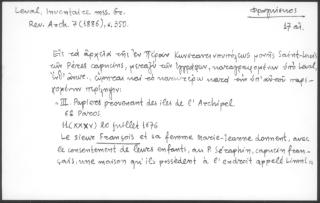 Laval, Inventaire mss. Gr.
Rev. Arch. 7 (1886), σ. 350.
Φραγκίσκος
17 αἰ.
Εἰς τὰ ἀρχεῖα τῆς ἐν Πέραν Κωνσταντινουπόλεως μονῆς Saint-Louis
τῶν Pères capucins, μεταξὺ τῶν ἐγγράφων, καταγραφομένων ὑπὸ Laval,
ἔνθ' ἄνωτ., εὕρηται καὶ τὸ κατωτέρω κατὰ τὴν ὑπ' αὐτοῦ παρε-
χομένην περίληψιν:
" III. Papiers provenant des îles de l'Archipel.
6º Paros.
H (XXXV) 20 juillet 1676.
Le sieur François et sa femme Marie-Jeanne donnent, avec
le consentement de leurs enfants, au P. Séraphin, capucin fran-
çais, une maison qu'ils possèdent à l'endroit appelé